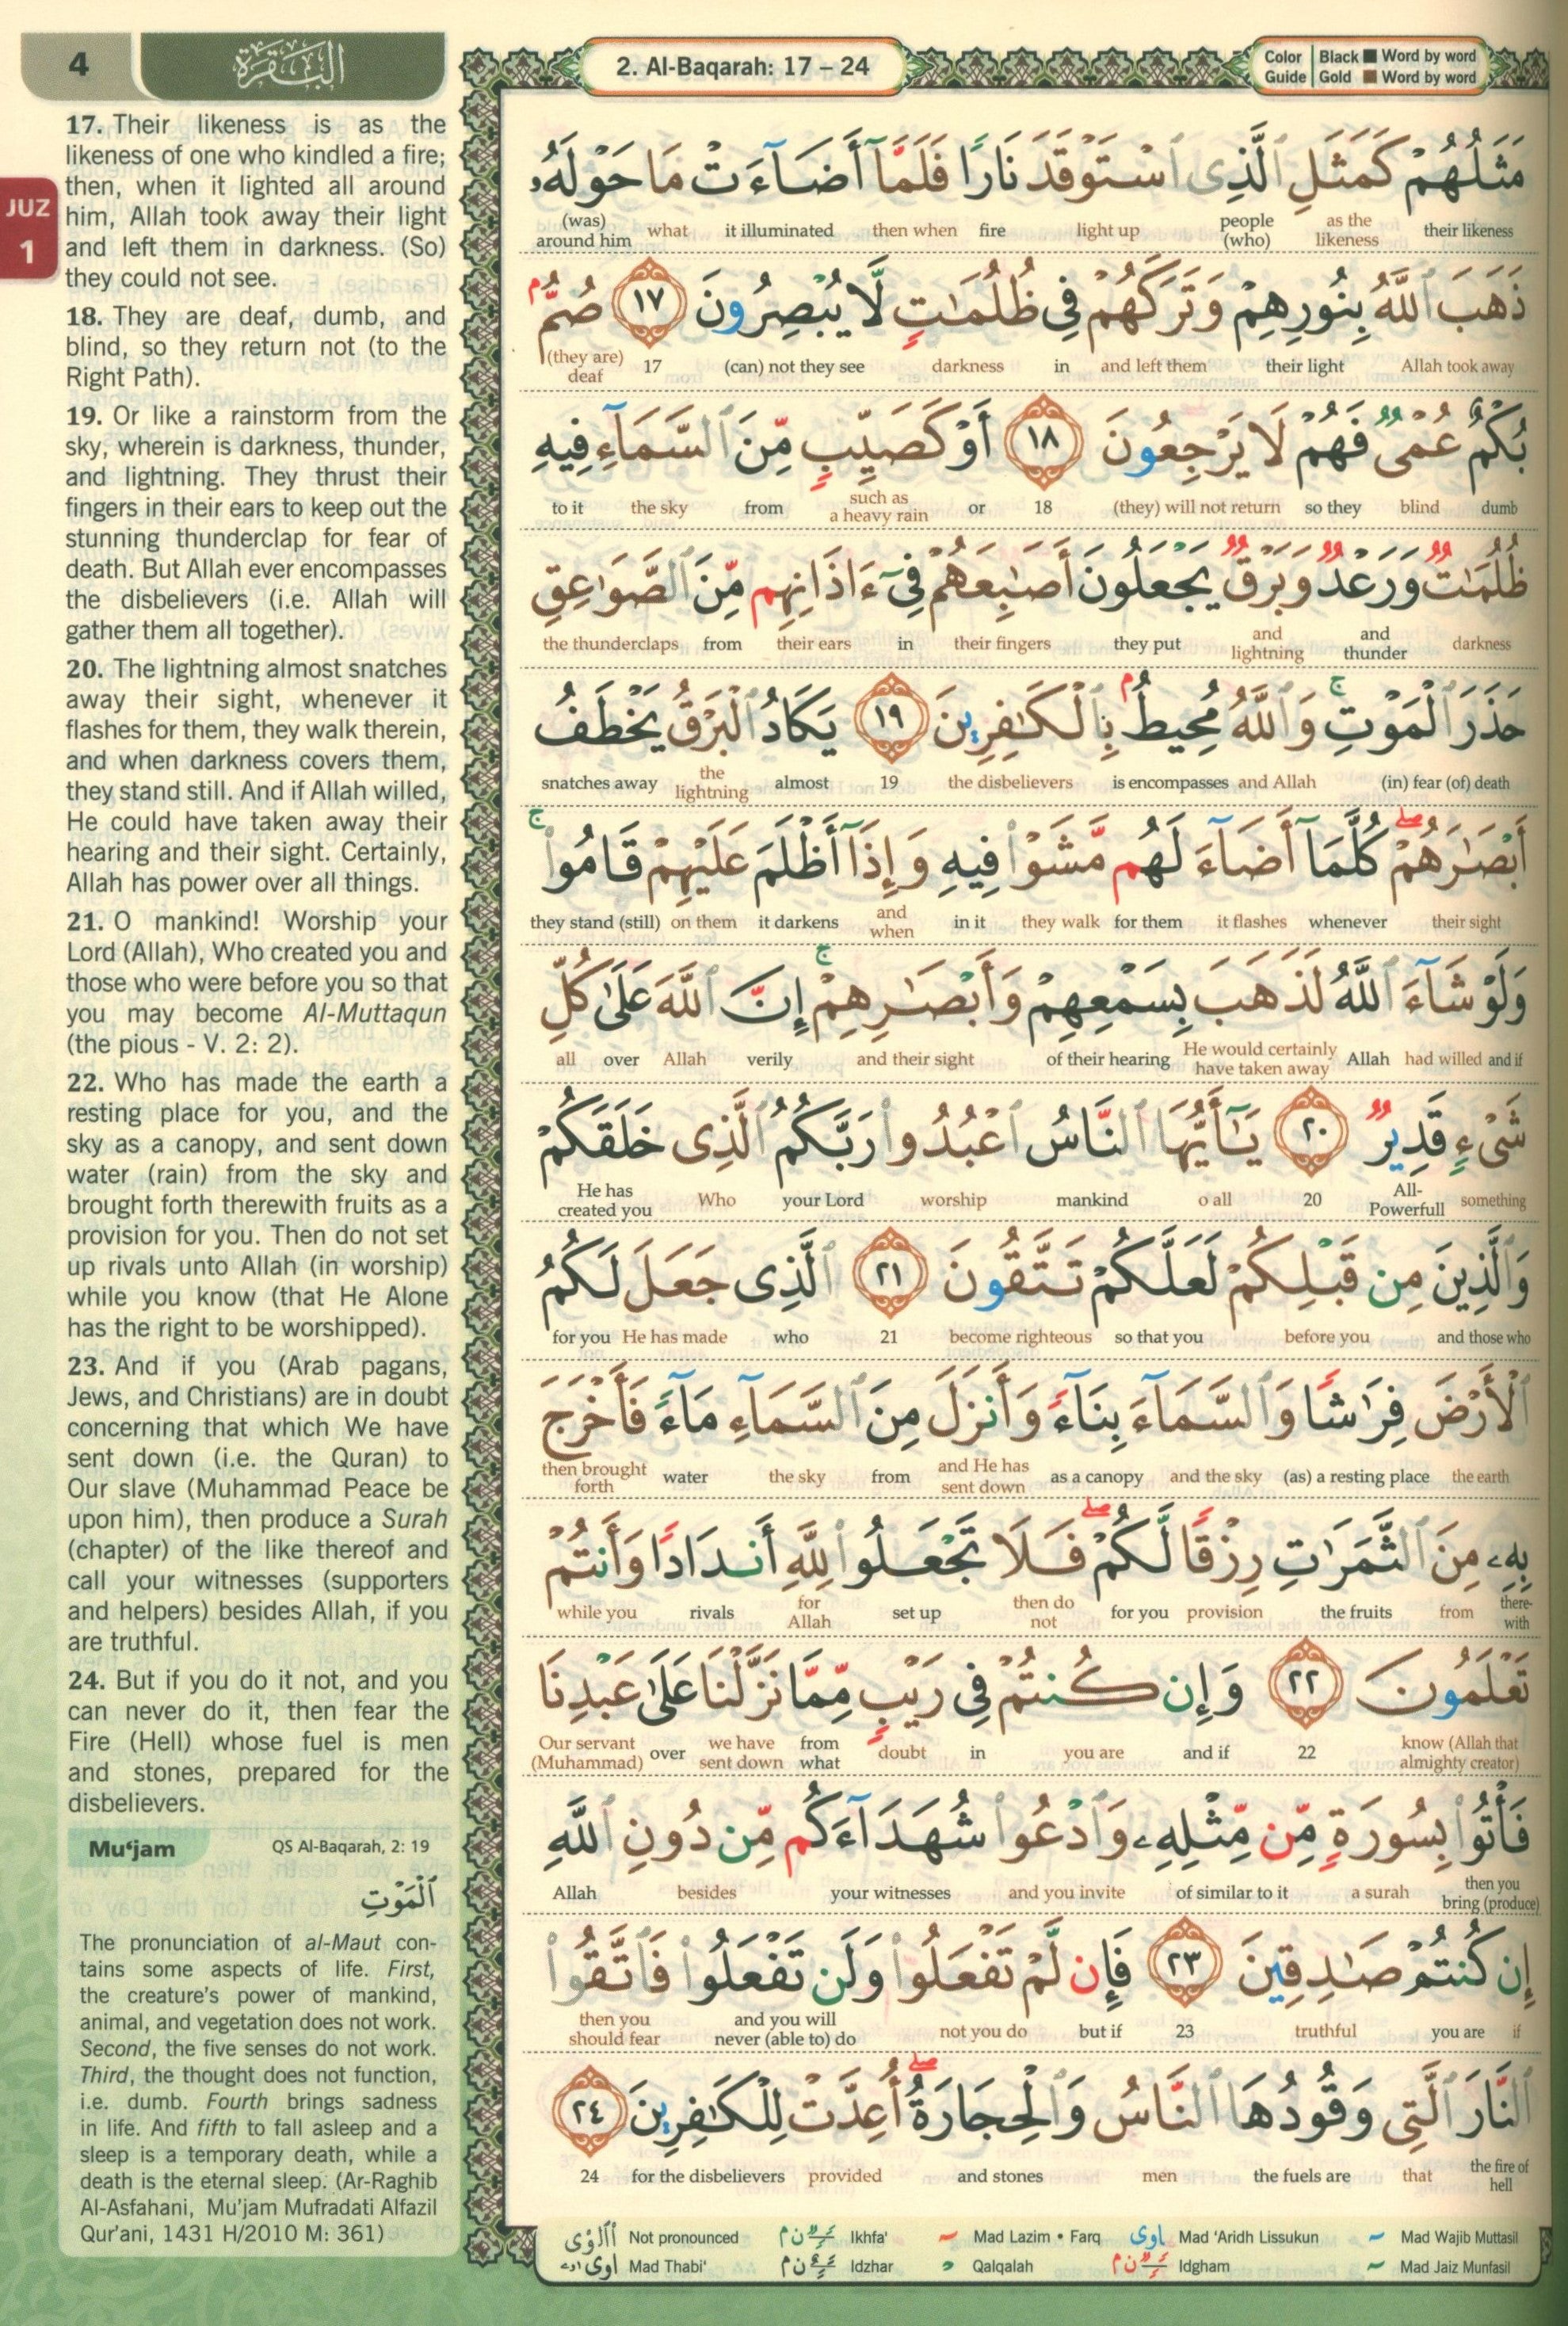 4
البقرة
2. Al-Baqarah: 17 – 24
Color Guide
Black ■ Word by word
Gold ■ Word by word
JUZ
1
17. Their likeness is as the
likeness of one who kindled a fire;
then, when it lighted all around
him, Allah took away their light
and left them in darkness. (So)
they could not see.
18. They are deaf, dumb, and
blind, so they return not (to the
Right Path).
19. Or like a rainstorm from the
sky, wherein is darkness, thunder,
and lightning. They thrust their
fingers in their ears to keep out the
stunning thunderclap for fear of
death. But Allah ever encompasses
the disbelievers (i.e. Allah will
gather them all together).
20. The lightning almost snatches
away their sight, whenever it
flashes for them, they walk therein,
and when darkness covers them,
they stand still. And if Allah willed,
He could have taken away their
hearing and their sight. Certainly,
Allah has power over all things.
21. O mankind! Worship your
Lord (Allah), Who created you and
those who were before you so that
you may become Al-Muttaqun
(the pious - V. 2: 2).
22. Who has made the earth a
resting place for you, and the
sky as a canopy, and sent down
water (rain) from the sky and
brought forth therewith fruits as a
provision for you. Then do not set
up rivals unto Allah (in worship)
while you know (that He Alone
has the right to be worshipped).
23. And if you (Arab pagans,
Jews, and Christians) are in doubt
concerning that which We have
sent down (i.e. the Quran) to
Our slave (Muhammad Peace be
upon him), then produce a Surah
(chapter) of the like thereof and
call your witnesses (supporters
and helpers) besides Allah, if you
are truthful.
24. But if you do it not, and you
can never do it, then fear the
Fire (Hell) whose fuel is men
and stones, prepared for the
disbelievers.
Mu‘jam QS Al-Baqarah, 2: 19
الْمَوْتِ
The pronunciation of al-Maut con-
tains some aspects of life. First,
the creature's power of mankind,
animal, and vegetation does not work.
Second, the five senses do not work.
Third, the thought does not function,
i.e. dumb. Fourth brings sadness
in life. And fifth to fall asleep and a
sleep is a temporary death, while a
death is the eternal sleep. (Ar-Raghib
Al-Asfahani, Mu'jam Mufradati Alfazil
Qur'ani, 1431 H/2010 M: 361)
مَثَلُهُمْ كَمَثَلِ ٱلَّذِى ٱسْتَوْقَدَ نَارًا فَلَمَّآ أَضَآءَتْ مَا حَوْلَهُۥ
their likeness as the likeness people (who) light up fire then when it illuminated what (was) around him
ذَهَبَ ٱللَّهُ بِنُورِهِمْ وَتَرَكَهُمْ فِى ظُلُمَـٰتٍ لَّا يُبْصِرُونَ ١٧ صُمٌّۢ
Allah took away their light and left them in darkness (can) not they see 17 (they are) deaf
بُكْمٌ عُمْىٌ فَهُمْ لَا يَرْجِعُونَ ١٨ أَوْ كَصَيِّبٍ مِّنَ ٱلسَّمَآءِ فِيهِ
dumb blind so they (they) will not return 18 or such as a heavy rain from the sky to it
ظُلُمَـٰتٌ وَرَعْدٌ وَبَرْقٌ يَجْعَلُونَ أَصَـٰبِعَهُمْ فِىٓ ءَاذَانِهِم مِّنَ ٱلصَّوَٰعِقِ
darkness and thunder and lightning they put their fingers in their ears from the thunderclaps
حَذَرَ ٱلْمَوْتِ ۚ وَٱللَّهُ مُحِيطٌۢ بِٱلْكَـٰفِرِينَ ١٩ يَكَادُ ٱلْبَرْقُ يَخْطَفُ
(in) fear (of) death and Allah is encompasses the disbelievers 19 almost the lightning snatches away
أَبْصَـٰرَهُمْ ۖ كُلَّمَآ أَضَآءَ لَهُم مَّشَوْا۟ فِيهِ وَإِذَآ أَظْلَمَ عَلَيْهِمْ قَامُوا۟ ۚ
their sight whenever it flashes for them they walk in it and when it darkens on them they stand (still)
وَلَوْ شَآءَ ٱللَّهُ لَذَهَبَ بِسَمْعِهِمْ وَأَبْصَـٰرِهِمْ ۚ إِنَّ ٱللَّهَ عَلَىٰ كُلِّ
and if had willed Allah He would certainly have taken away of their hearing and their sight verily Allah over all
شَىْءٍ قَدِيرٌ ٢٠ يَـٰٓأَيُّهَا ٱلنَّاسُ ٱعْبُدُوا۟ رَبَّكُمُ ٱلَّذِى خَلَقَكُمْ
something All-Powerfull 20 o all mankind worship your Lord Who He has created you
وَٱلَّذِينَ مِن قَبْلِكُمْ لَعَلَّكُمْ تَتَّقُونَ ٢١ ٱلَّذِى جَعَلَ لَكُمُ
and those who before you so that you become righteous 21 who He has made for you
ٱلْأَرْضَ فِرَٰشًا وَٱلسَّمَآءَ بِنَآءً وَأَنزَلَ مِنَ ٱلسَّمَآءِ مَآءً فَأَخْرَجَ
the earth (as) a resting place and the sky as a canopy and He has sent down from the sky water then brought forth
بِهِۦ مِنَ ٱلثَّمَرَٰتِ رِزْقًا لَّكُمْ ۖ فَلَا تَجْعَلُوا۟ لِلَّهِ أَندَادًا وَأَنتُمْ
there-with from the fruits provision for you then do not set up for Allah rivals while you
تَعْلَمُونَ ٢٢ وَإِن كُنتُمْ فِى رَيْبٍ مِّمَّا نَزَّلْنَا عَلَىٰ عَبْدِنَا
know (Allah that almighty creator) 22 and if you are in doubt from what we have sent down over Our servant (Muhammad)
فَأْتُوا۟ بِسُورَةٍ مِّن مِّثْلِهِۦ وَٱدْعُوا۟ شُهَدَآءَكُم مِّن دُونِ ٱللَّهِ
then you bring (produce) a surah of similar to it and you invite your witnesses besides Allah
إِن كُنتُمْ صَـٰدِقِينَ ٢٣ فَإِن لَّمْ تَفْعَلُوا۟ وَلَن تَفْعَلُوا۟ فَٱتَّقُوا۟
if you are truthful 23 but if not you do and you will never (able to) do then you should fear
ٱلنَّارَ ٱلَّتِى وَقُودُهَا ٱلنَّاسُ وَٱلْحِجَارَةُ ۖ أُعِدَّتْ لِلْكَـٰفِرِينَ ٢٤
the fire of hell that the fuels are men and stones provided for the disbelievers 24
Not pronounced Ikhfa' Mad Lazim • Farq Mad ‘Aridh Lissukun Mad Wajib Muttasil
Mad Thabi' Idzhar Qalqalah Idgham Mad Jaiz Munfasil